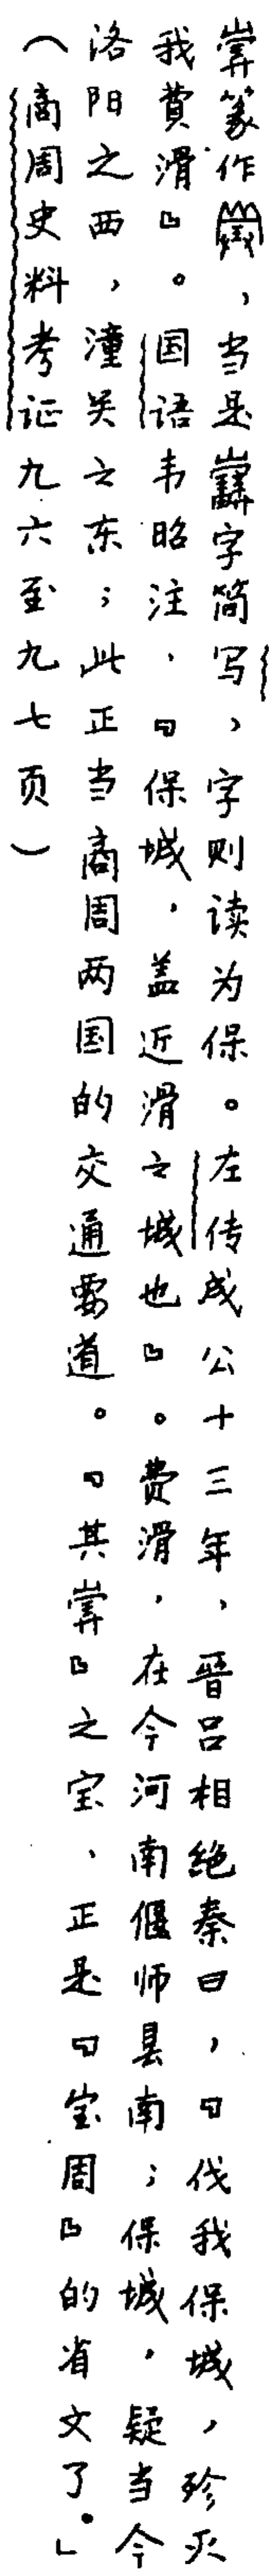 篆作,当是字简写,字则读为保。左传成公十三年,晋吕相绝秦曰,『伐我保城,殄灭
我費滑』。国语韦昭注,『保城,盖近滑之城也』。费滑,在今河南偃师县南;保城,疑当今
洛阳之西,潼关之东;此正当商周两国的交通要道。『其』之宝,正是『宝周』的省文了。」
(商周史料考证九六至九七页)